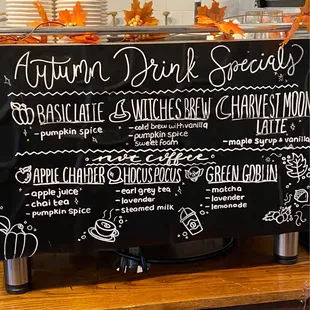 Autumn Drink Specials
BASIC LATTE
- pumpkin spice
WITCHES BREW
- cold brew with vanilla
pumpkin spice
sweet foam
HARVEST MOON
LATTE
- maple syrup & vanilla
not coffee
APPLE CHAIDER
- apple juice
- chai tea
- pumpkin spice
HOCUS POCUS
- earl grey tea
- lavender
- steamed milk
GREEN GOBLIN
- matcha
- lavender
- lemonade